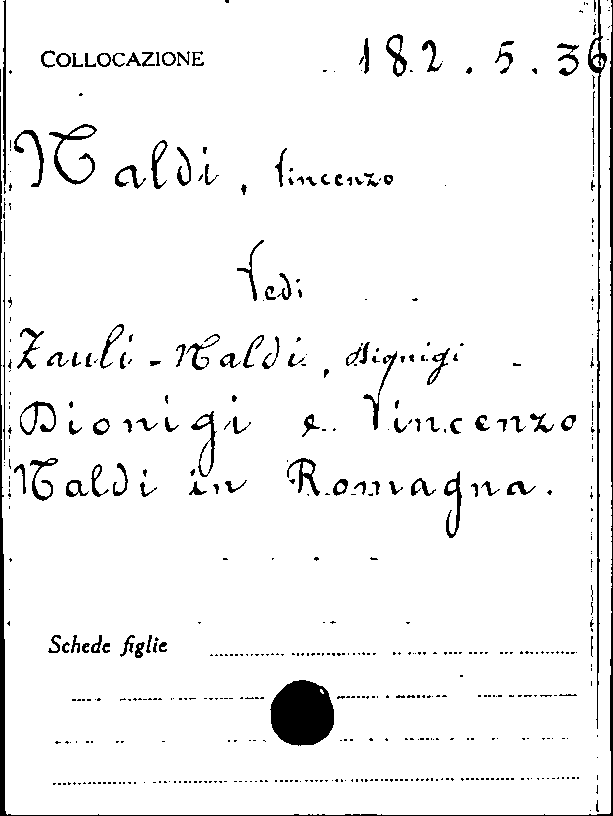 COLLOCAZIONE 182.5.36
Naldi, Vincenzo
Vedi
Zauli-Naldi, Dionigi
Dionigi e Vincenzo
Naldi in Romagna.
Schede figlie